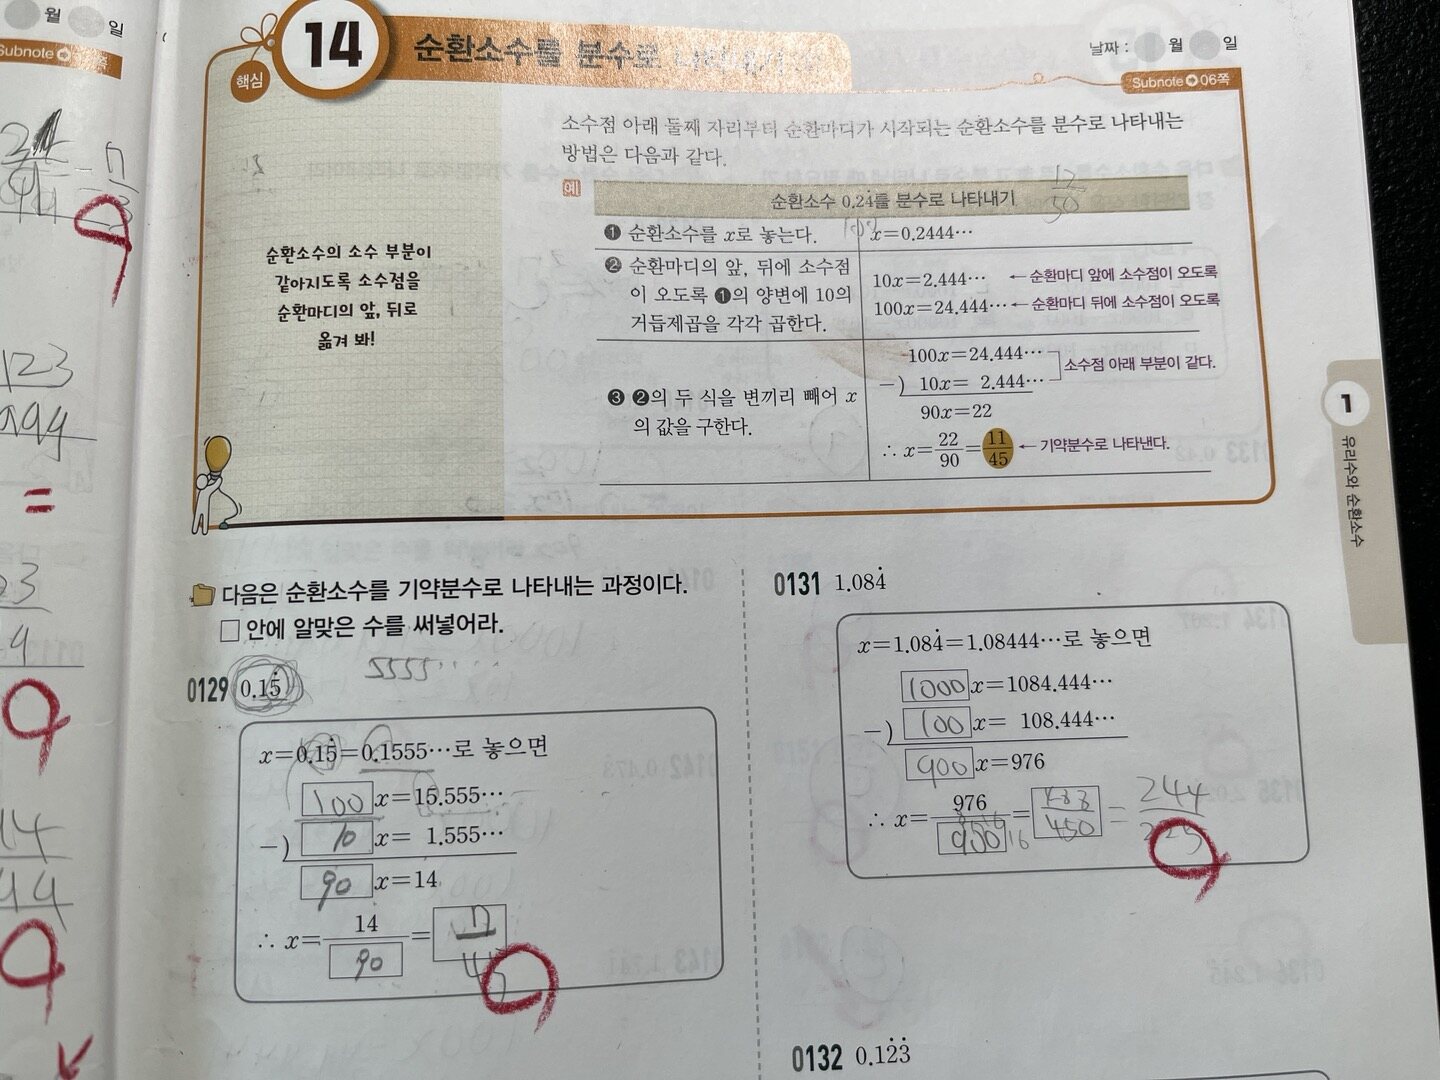 월 일
Subnote
14
순환소수를 분수로
날짜 : 월 일
Subnote 06쪽
핵심
순환소수의 소수 부분이
같아지도록 소수점을
순환마디의 앞, 뒤로
옮겨 봐!
소수점 아래 둘째 자리부터 순환마디가 시작되는 순환소수를 분수로 나타내는
방법은 다음과 같다.
예
순환소수 0.24̇를 분수로 나타내기
12/50
❶ 순환소수를 x로 놓는다.
x=0.2444⋯
❷ 순환마디의 앞, 뒤에 소수점
이 오도록 ❶의 양변에 10의
거듭제곱을 각각 곱한다.
10x=2.444⋯ ← 순환마디 앞에 소수점이 오도록
100x=24.444⋯ ← 순환마디 뒤에 소수점이 오도록
❸ ❷의 두 식을 변끼리 빼어 x
의 값을 구한다.
100x=24.444⋯
−) 10x= 2.444⋯
소수점 아래 부분이 같다.
90x=22
∴ x=22/90=11/45 ← 기약분수로 나타낸다.
1
유리수와 순환소수
123
=
다음은 순환소수를 기약분수로 나타내는 과정이다.
□ 안에 알맞은 수를 써넣어라.
0129 0.15̇
5555⋯
x=0.15̇=0.1555⋯로 놓으면
100 x=15.555⋯
−) 10 x= 1.555⋯
90 x=14
∴ x=14/90=7/45
0131 1.084̇
x=1.084̇=1.08444⋯로 놓으면
1000 x=1084.444⋯
−) 100 x= 108.444⋯
900 x=976
∴ x=976/900=488/450=244/225
0132 0.12̇3̇